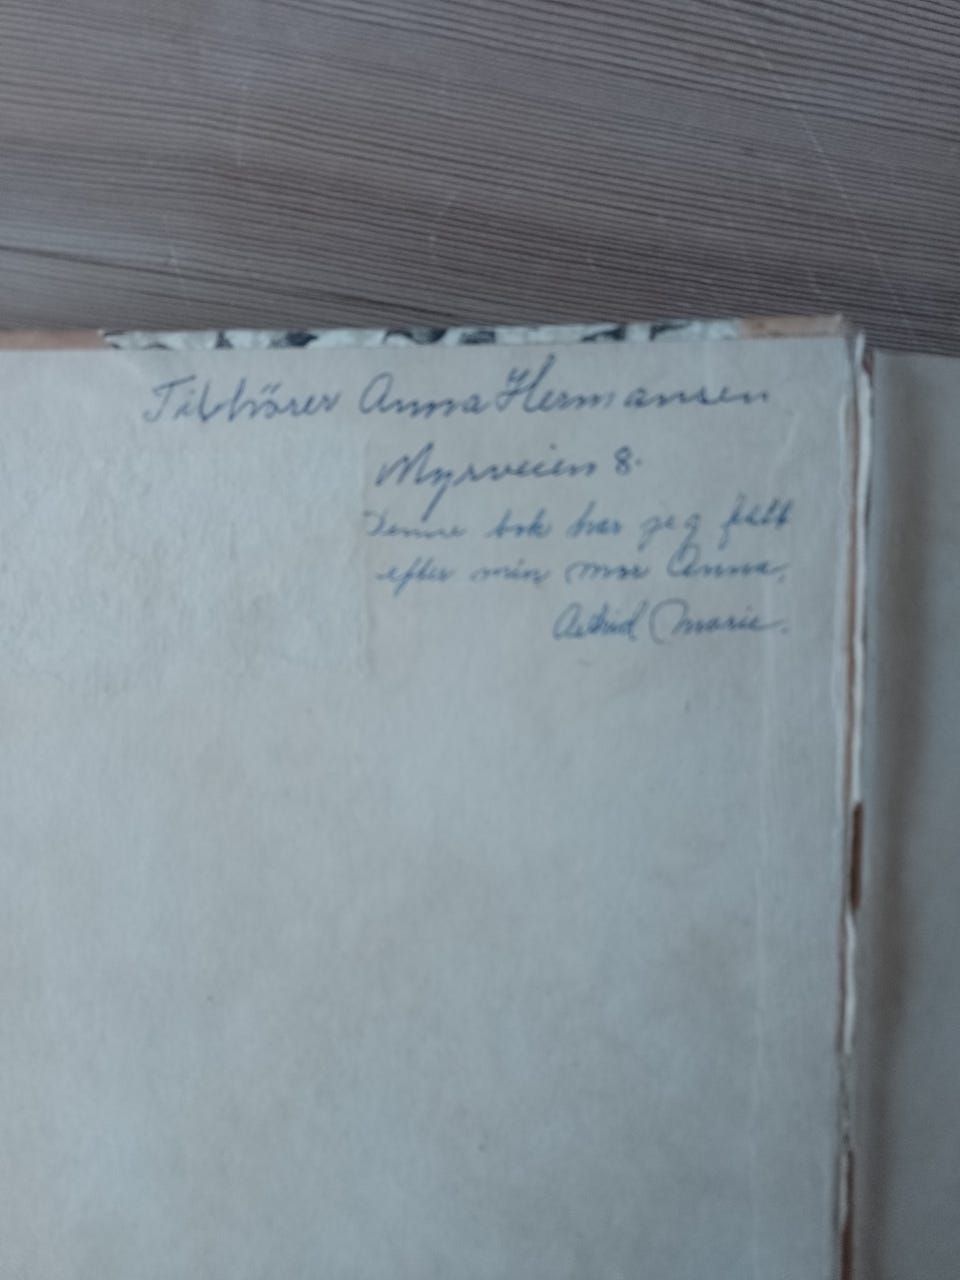 Tilhörer Anna Hermansen
Myrveien 8.
Denne bok har jeg fått
efter min mor Anna.
Astrid Marie.